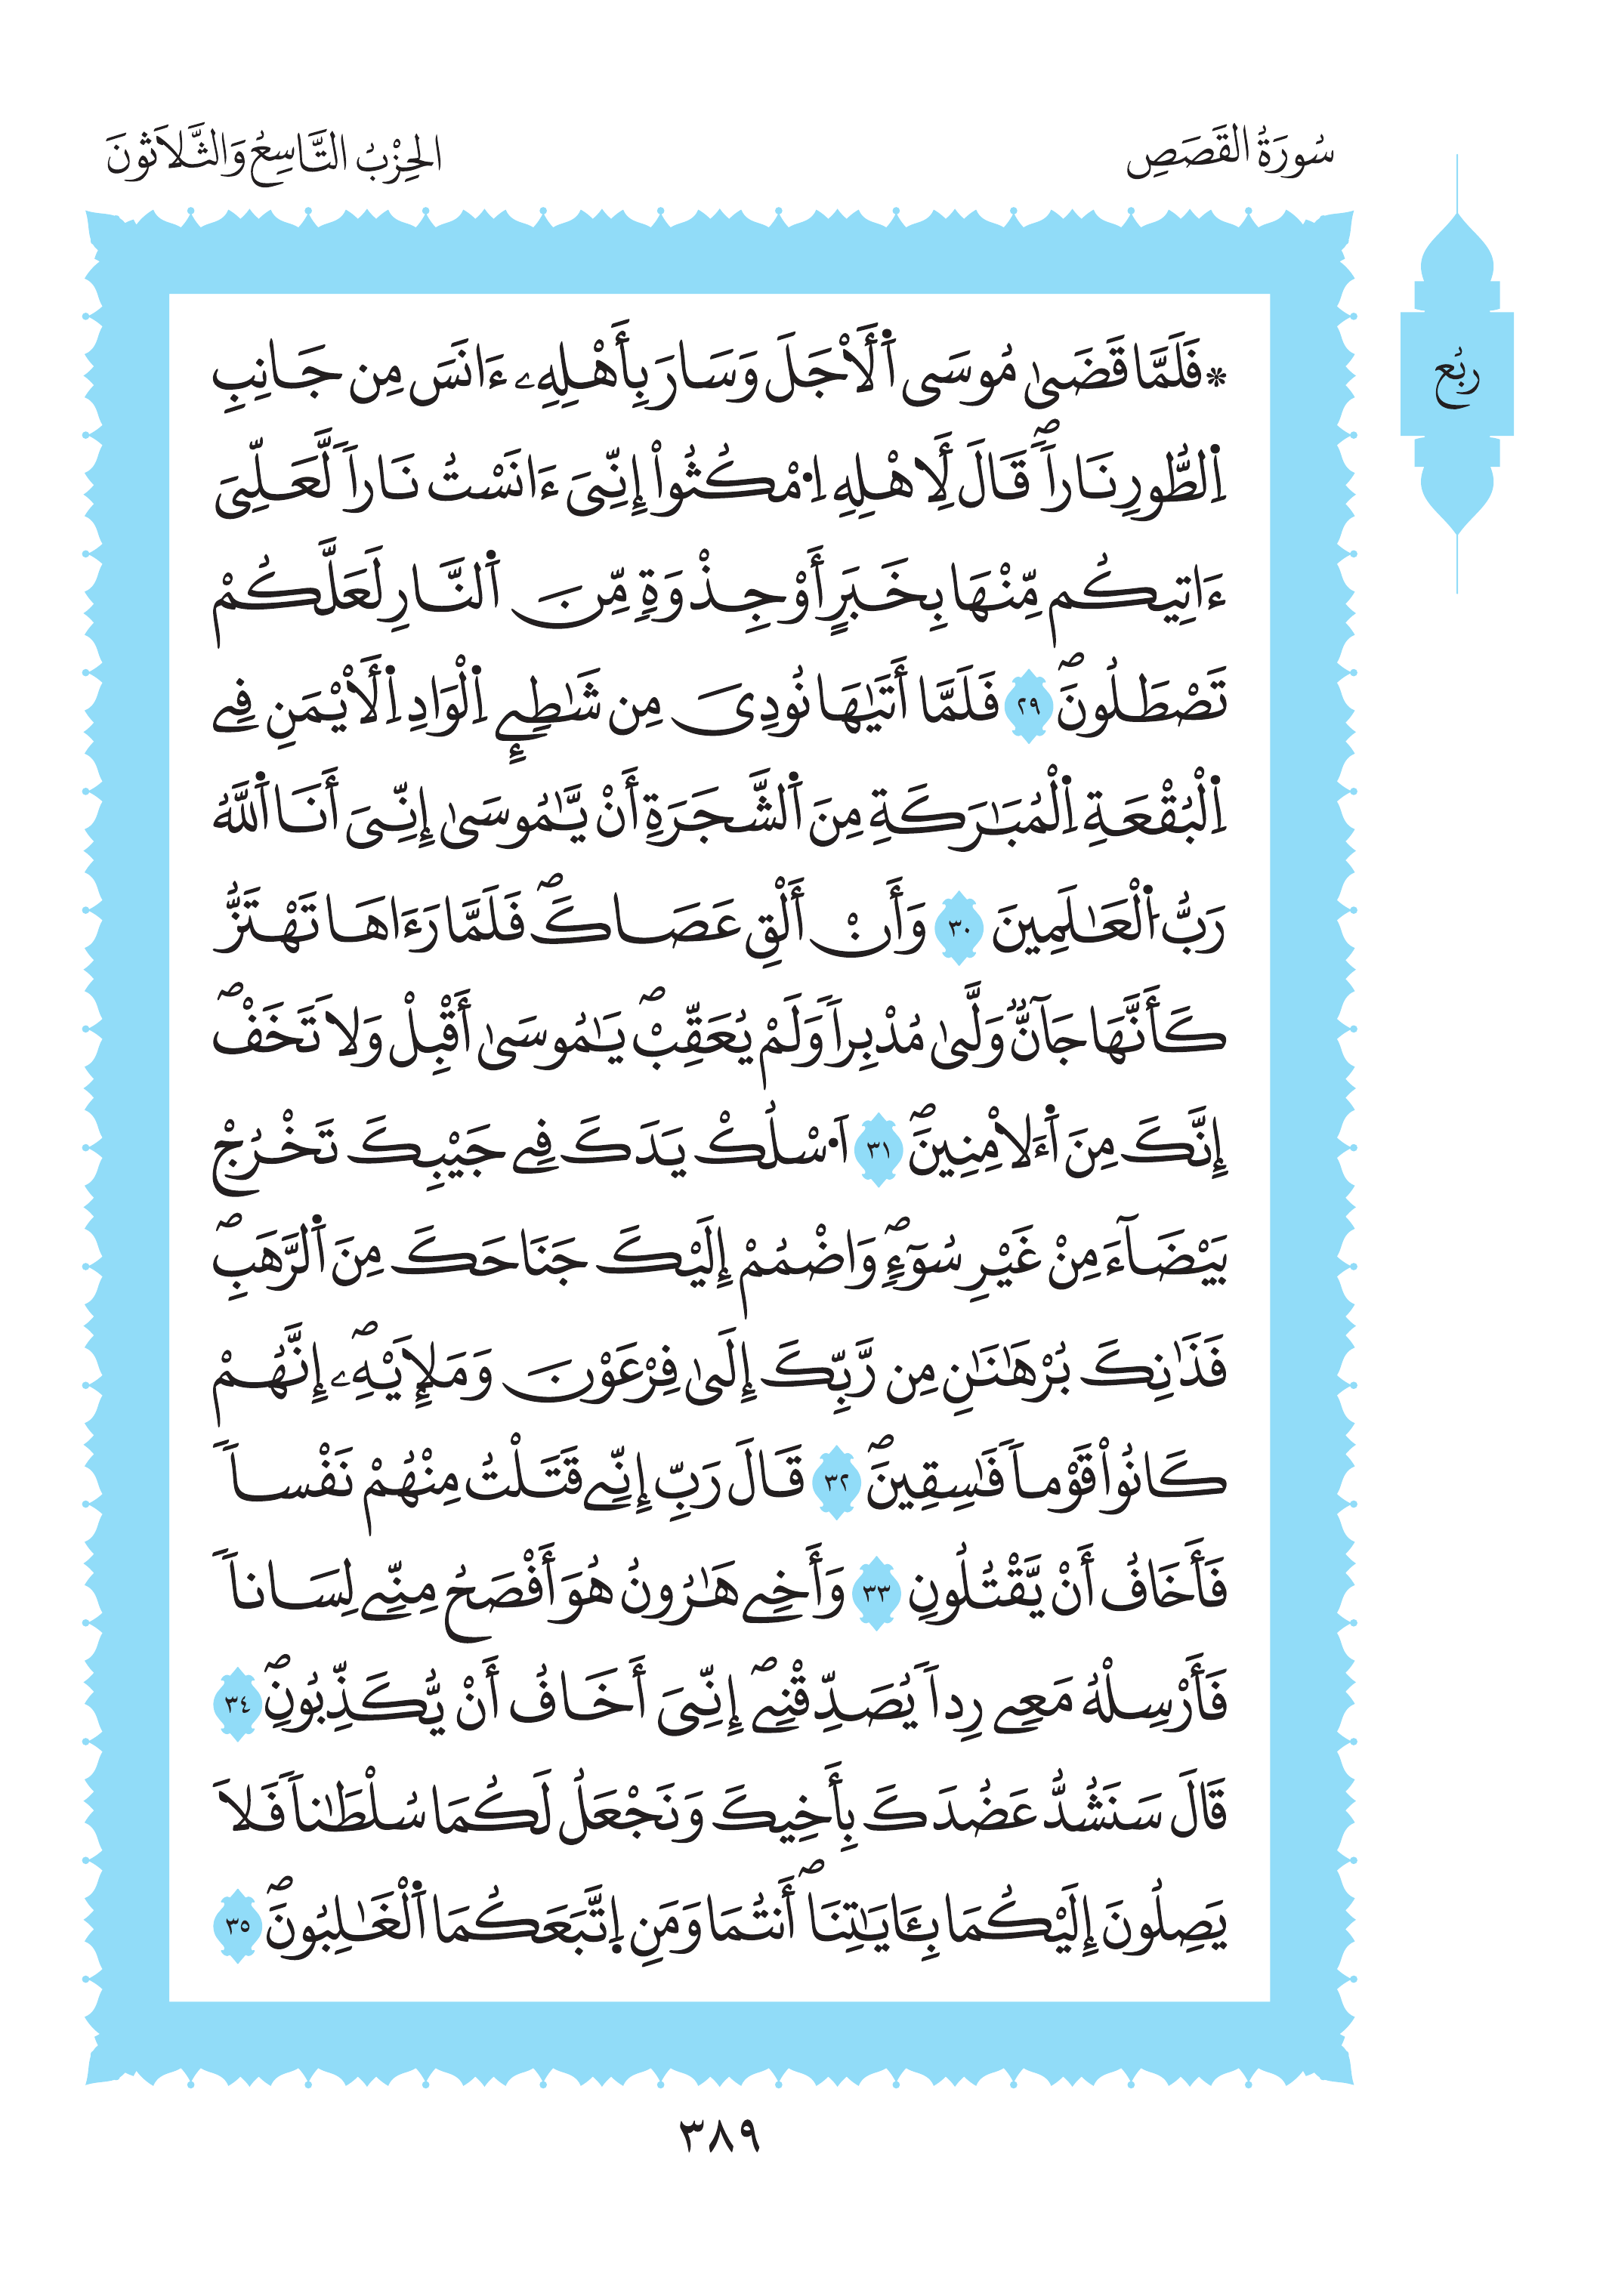 سُورَةُ القَصَصِ
الحِزْبُ التَّاسِعُ وَالثَّلَاثُونَ
رُبُع
* فَلَمَّا قَضَىٰ مُوسَى اَ۬لْأَجَلَ وَسَارَ بِأَهْلِهِۦ ءَانَسَ مِن جَانِبِ
اِ۬لطُّورِ نَاراٗۖ قَالَ لِأَهْلِهِ اِ۟مْكُثُوٓاْ إِنِّيَ ءَانَسْتُ نَاراٗ لَّعَلِّيَ
ءَاتِيكُم مِّنْهَا بِخَبَرٍ أَوْ جِذْوَةٖ مِّنَ اَ۬لنَّارِ لَعَلَّكُمْ
تَصْطَلُونَۖ ٢٩ فَلَمَّا أَتَىٰهَا نُودِيَ مِن شَٰطِےِٕ اِ۬لْوَادِ اِ۬لْأَيْمَنِ فِے
اِ۬لْبُقْعَةِ اِ۬لْمُبَٰرَكَةِ مِنَ اَ۬لشَّجَرَةِ أَنْ يَّٰمُوسَىٰ إِنِّيَ أَنَا اَ۬للَّهُ
رَبُّ اُ۬لْعَٰلَمِينَ ٣٠ وَأَنْ أَلْقِ عَصَاكَۖ فَلَمَّا رَءَاهَا تَهْتَزُّ
كَأَنَّهَا جَآنّٞ وَلَّىٰ مُدْبِراٗ وَلَمْ يُعَقِّبْۖ يَٰمُوسَىٰ أَقْبِلْ وَلَا تَخَفْۖ
إِنَّكَ مِنَ اَ۬لْأٓمِنِينَۖ ٣١ اَ۟سْلُكْ يَدَكَ فِے جَيْبِكَ تَخْرُجْ
بَيْضَآءَ مِنْ غَيْرِ سُوٓءٖۖ وَاضْمُمْ إِلَيْكَ جَنَاحَكَ مِنَ اَ۬لرَّهَبِۖ
فَذَٰنِكَ بُرْهَٰنَٰنِ مِن رَّبِّكَ إِلَىٰ فِرْعَوْنَ وَمَلَإِيْهِۦۖ إِنَّهُمْ
كَانُواْ قَوْماٗ فَٰسِقِينَۖ ٣٢ قَالَ رَبِّ إِنِّے قَتَلْتُ مِنْهُمْ نَفْساٗ
فَأَخَافُ أَنْ يَّقْتُلُونِ ٣٣ وَأَخِے هَٰرُونُ هُوَ أَفْصَحُ مِنِّے لِسَاناٗ
فَأَرْسِلْهُ مَعِے رِداٗ يُصَدِّقْنِےۖ إِنِّيَ أَخَافُ أَنْ يُّكَذِّبُونِۖ ٣٤
قَالَ سَنَشُدُّ عَضُدَكَ بِأَخِيكَ وَنَجْعَلُ لَكُمَا سُلْطَٰناٗ فَلَا
يَصِلُونَ إِلَيْكُمَا بِـَٔايَٰتِنَاۖ أَنتُمَا وَمَنِ اِ۪تَّبَعَكُمَا اَ۬لْغَٰلِبُونَۖ ٣٥
٣٨٩